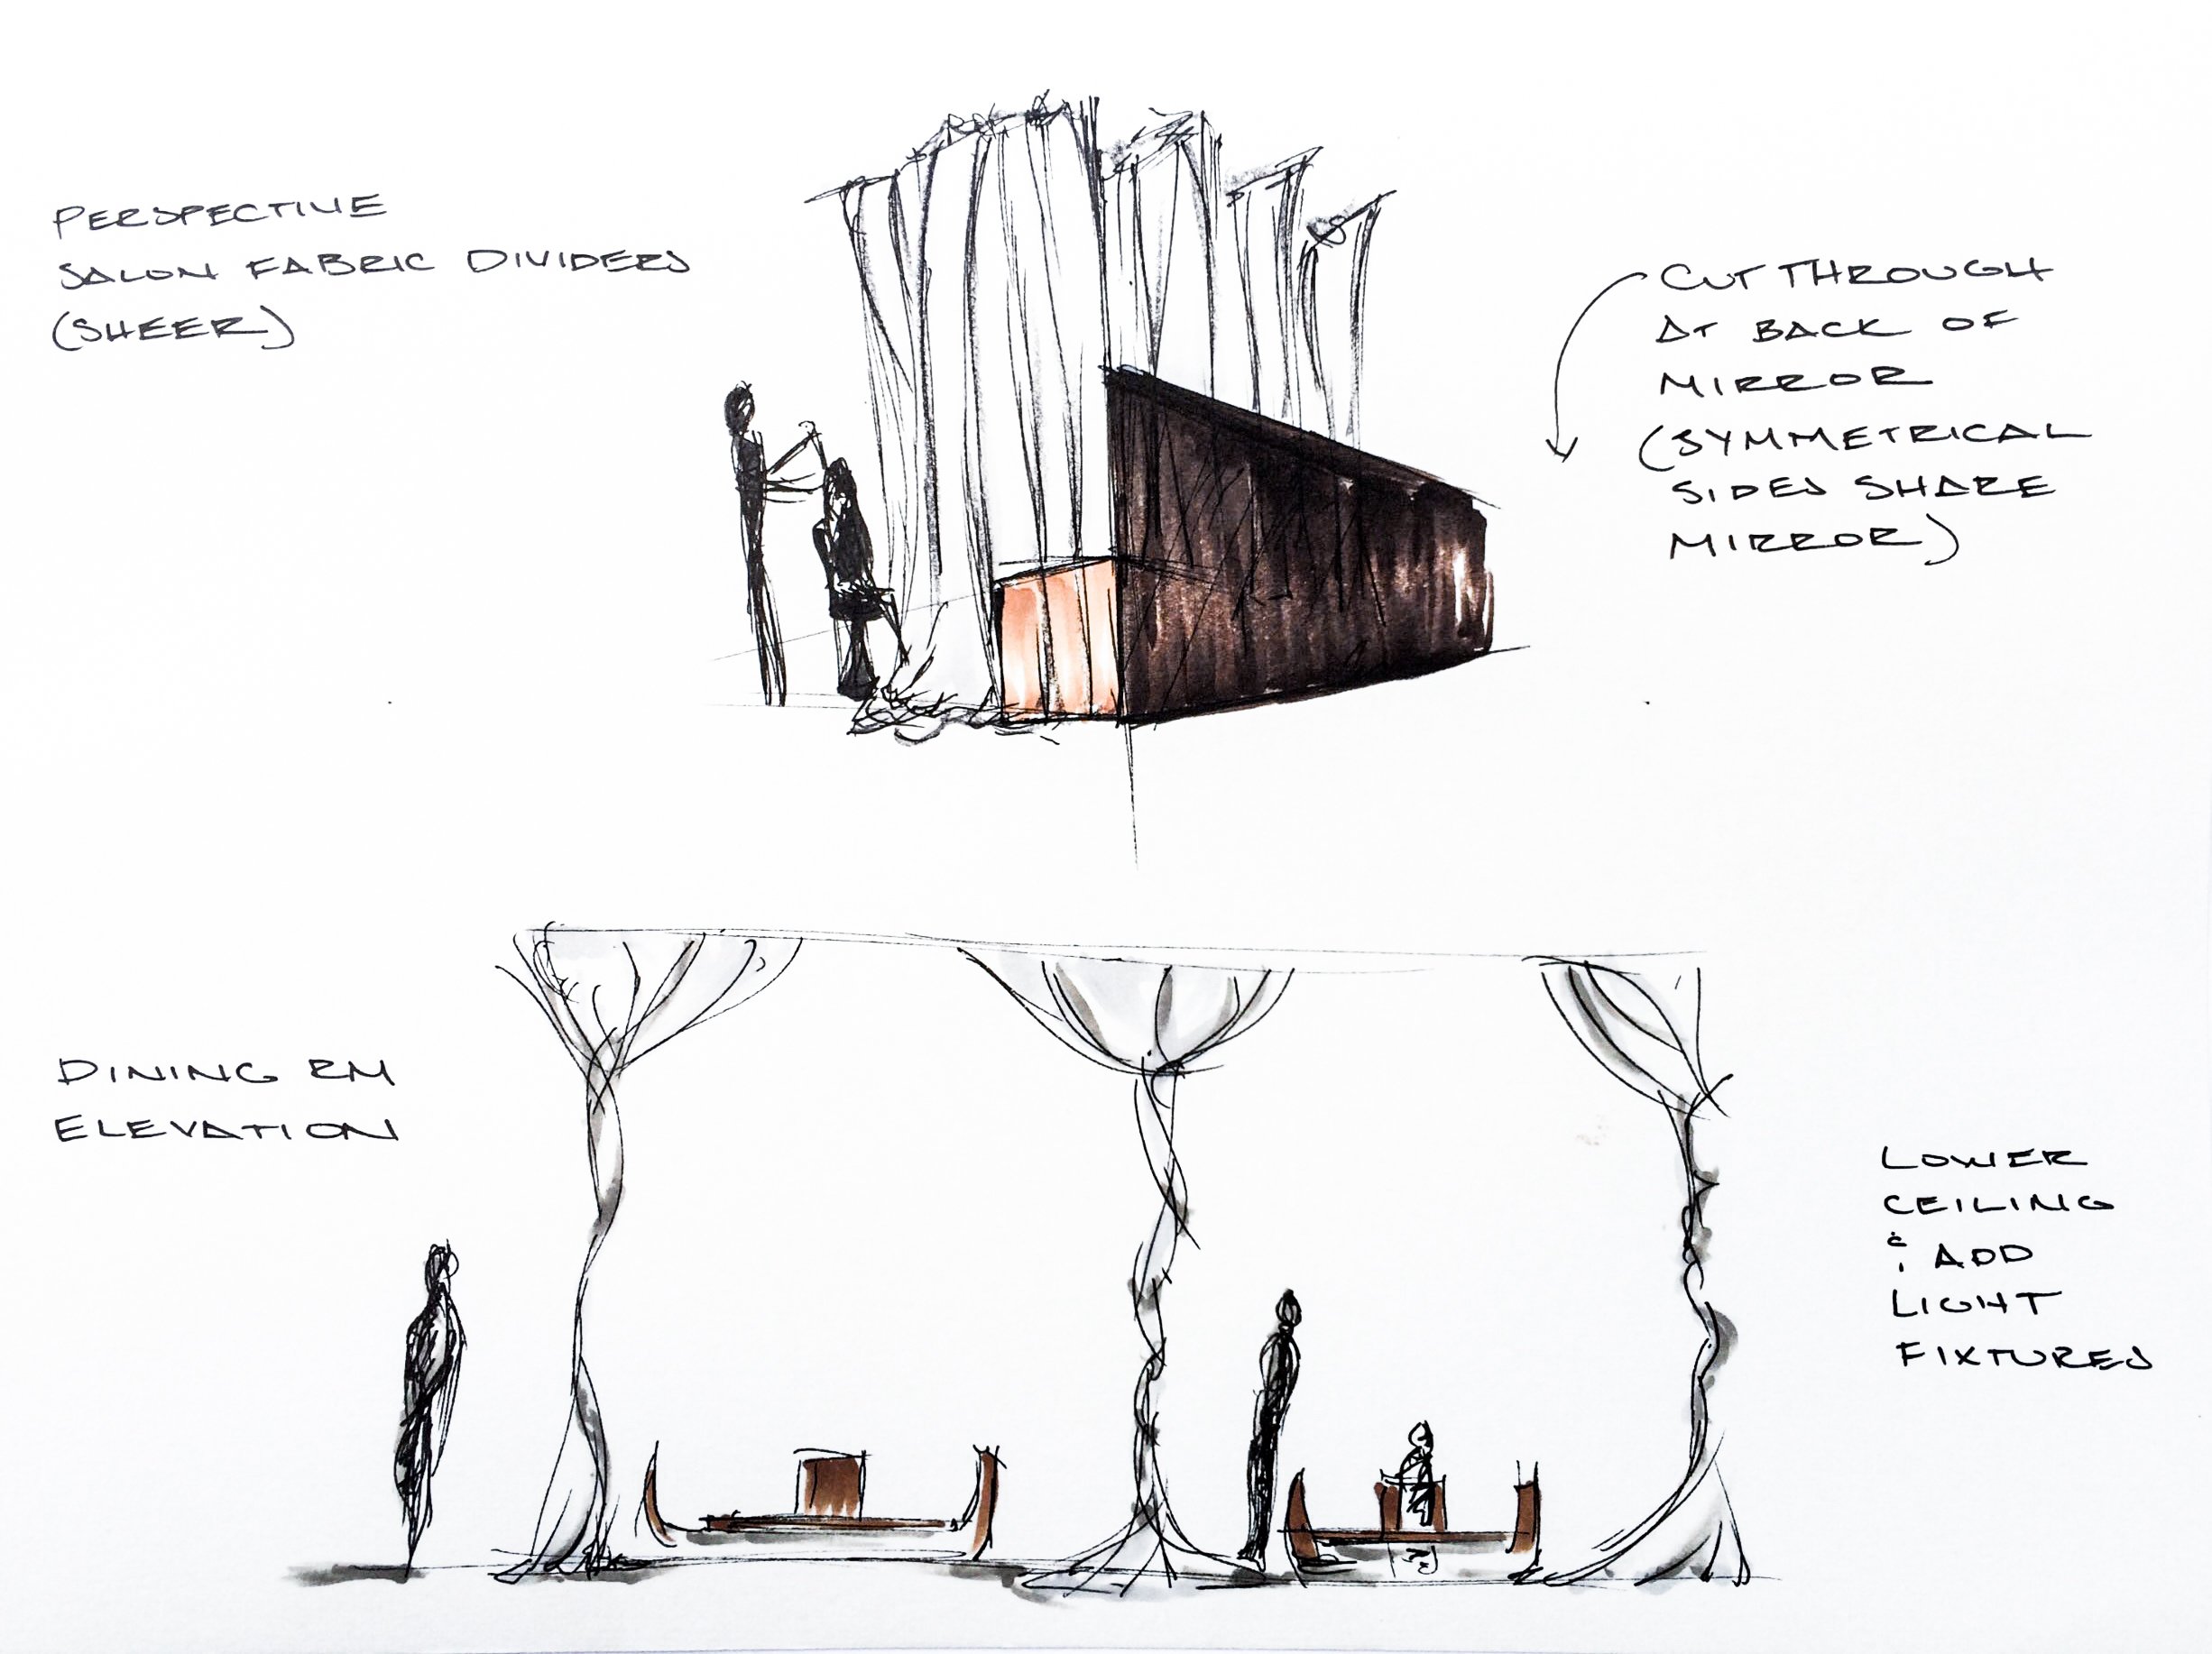 PERSPECTIVE
SALON FABRIC DIVIDERS
(SHEER)
CUT THROUGH
AT BACK OF
MIRROR
(SYMMETRICAL
SIDES SHARE
MIRROR)
DINING RM
ELEVATION
LOWER
CEILING
& ADD
LIGHT
FIXTURES